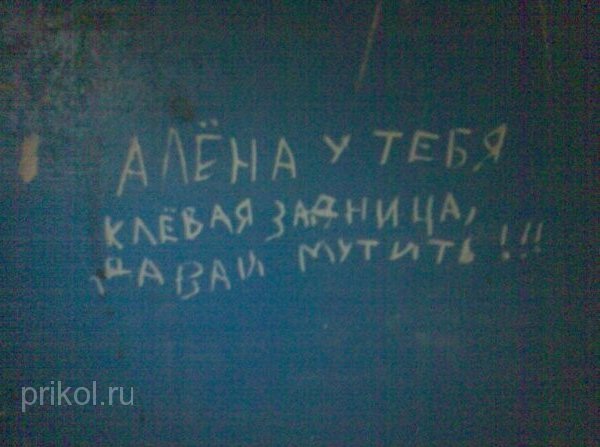 АЛЁНА У ТЕБЯ
КЛЁВАЯ ЗАДНИЦА,
ДАВАЙ МУТИТЬ!!!
prikol.ru